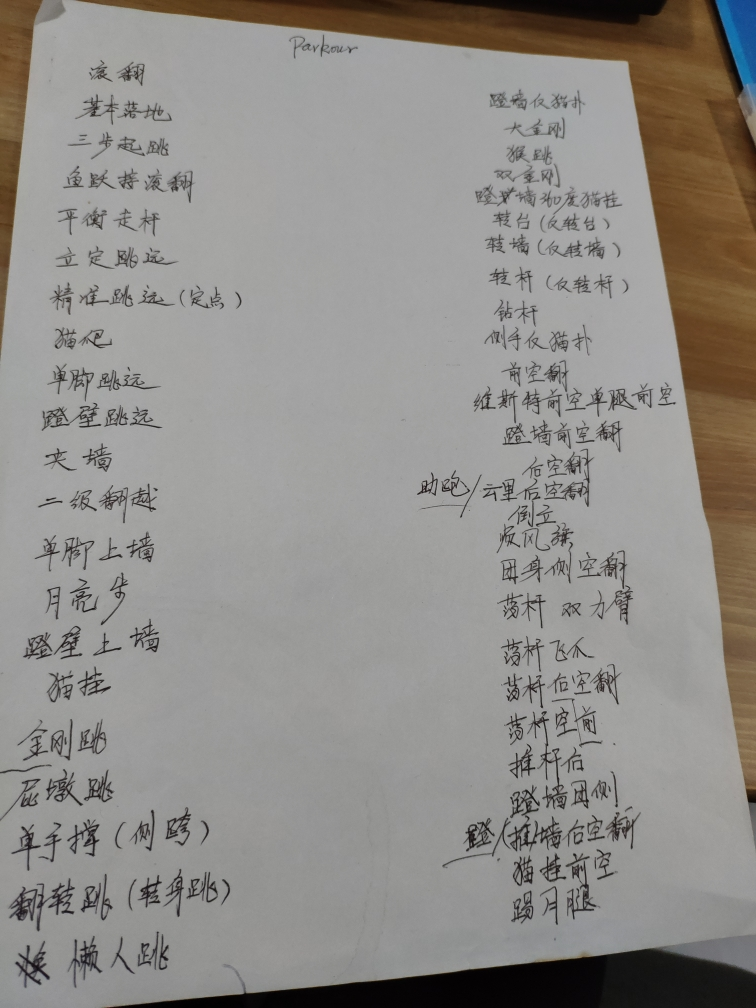 Parkour
滚翻
基本落地
三步起跳
鱼跃接滚翻
平衡走杆
立定跳远
精准跳远(定点)
猫爬
单脚跳远
蹬壁跳远
夹墙
二级翻越
单脚上墙
月亮步
蹬壁上墙
猫挂
金刚跳
屁墩跳
单手撑(侧跨)
翻转跳(转身跳)
懒人跳
蹬墙反猫扑
大金刚
猴跳
双金刚
蹬墙 加度猫挂
转台(反转台)
转墙(反转墙)
转杆(反转杆)
钻杆
侧手反猫扑
前空翻
维斯特前空单腿前空
蹬墙前空翻
后空翻
助跑/云里后空翻
倒立
疾风旗
团身侧空翻
荡杆 双力臂
荡杆飞爪
荡杆后空翻
荡杆空前
推杆后
蹬墙团侧
蹬/(推)墙后空翻
猫挂前空
踢月腿